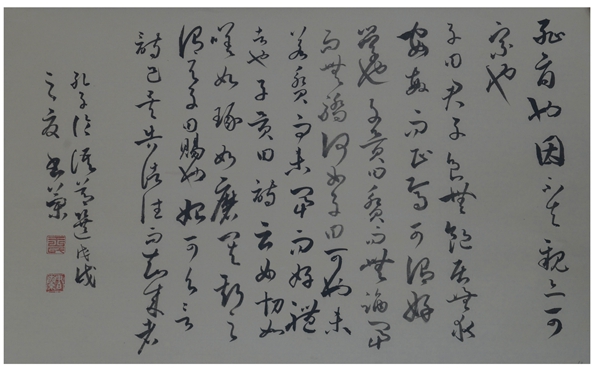 恥辱也因不失親亦可
宗也
子曰君子食無飽居無求
安敏而正焉可謂好
學也子貢曰貧而無諂富
而無驕何如子曰可也未
若貧而樂富而好禮
者也子貢曰詩云如切如
磋如琢如磨其斯之
謂與子曰賜也始可與言
詩已矣告諸往而知來者
孔子論語節選戊戌
之夏